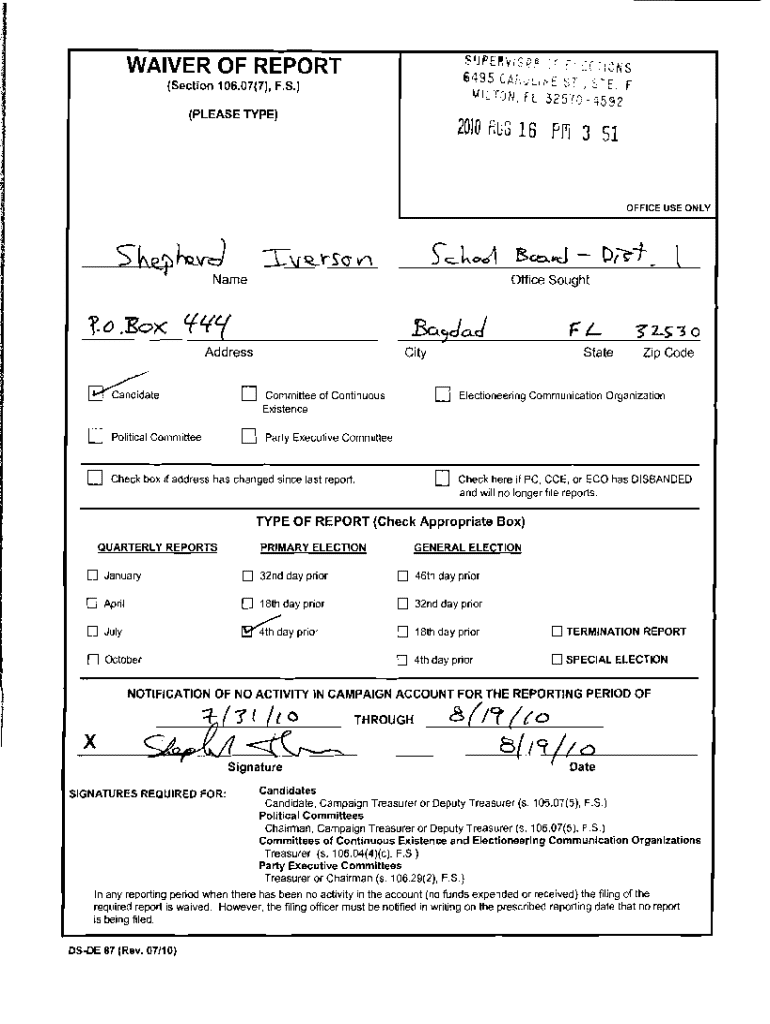 WAIVER OF REPORT
(Section 106.07(7), F.S.)
(PLEASE TYPE)
SUPERVISOR OF ELECTIONS
6495 CAROLINE ST, STE. F
MILTON, FL 32570-4592
2010 AUG 16 PM 3 51
OFFICE USE ONLY
Shepherd Iverson School Board - Dist. 1
Name Office Sought
P.O. Box 444 Bagdad FL 32530
Address City State Zip Code
Candidate Committee of Continuous Existence Electioneering Communication Organization
Political Committee Party Executive Committee
Check box if address has changed since last report. Check here if PC, CCE, or ECO has DISBANDED
and will no longer file reports.
TYPE OF REPORT (Check Appropriate Box)
QUARTERLY REPORTS PRIMARY ELECTION GENERAL ELECTION
January 32nd day prior 46th day prior
April 18th day prior 32nd day prior
July 4th day prior 18th day prior TERMINATION REPORT
October 4th day prior SPECIAL ELECTION
NOTIFICATION OF NO ACTIVITY IN CAMPAIGN ACCOUNT FOR THE REPORTING PERIOD OF
7/31/10 THROUGH 8/19/10
X 8/19/10
Signature Date
SIGNATURES REQUIRED FOR: Candidates
Candidate, Campaign Treasurer or Deputy Treasurer (s. 106.07(5), F.S.)
Political Committees
Chairman, Campaign Treasurer or Deputy Treasurer (s. 106.07(5), F.S.)
Committees of Continuous Existence and Electioneering Communication Organizations
Treasurer (s. 106.04(4)(c), F.S.)
Party Executive Committees
Treasurer or Chairman (s. 106.29(2), F.S.)
In any reporting period when there has been no activity in the account (no funds expended or received) the filing of the
required report is waived. However, the filing officer must be notified in writing on the prescribed reporting date that no report
is being filed.
DS-DE 87 (Rev. 07/10)